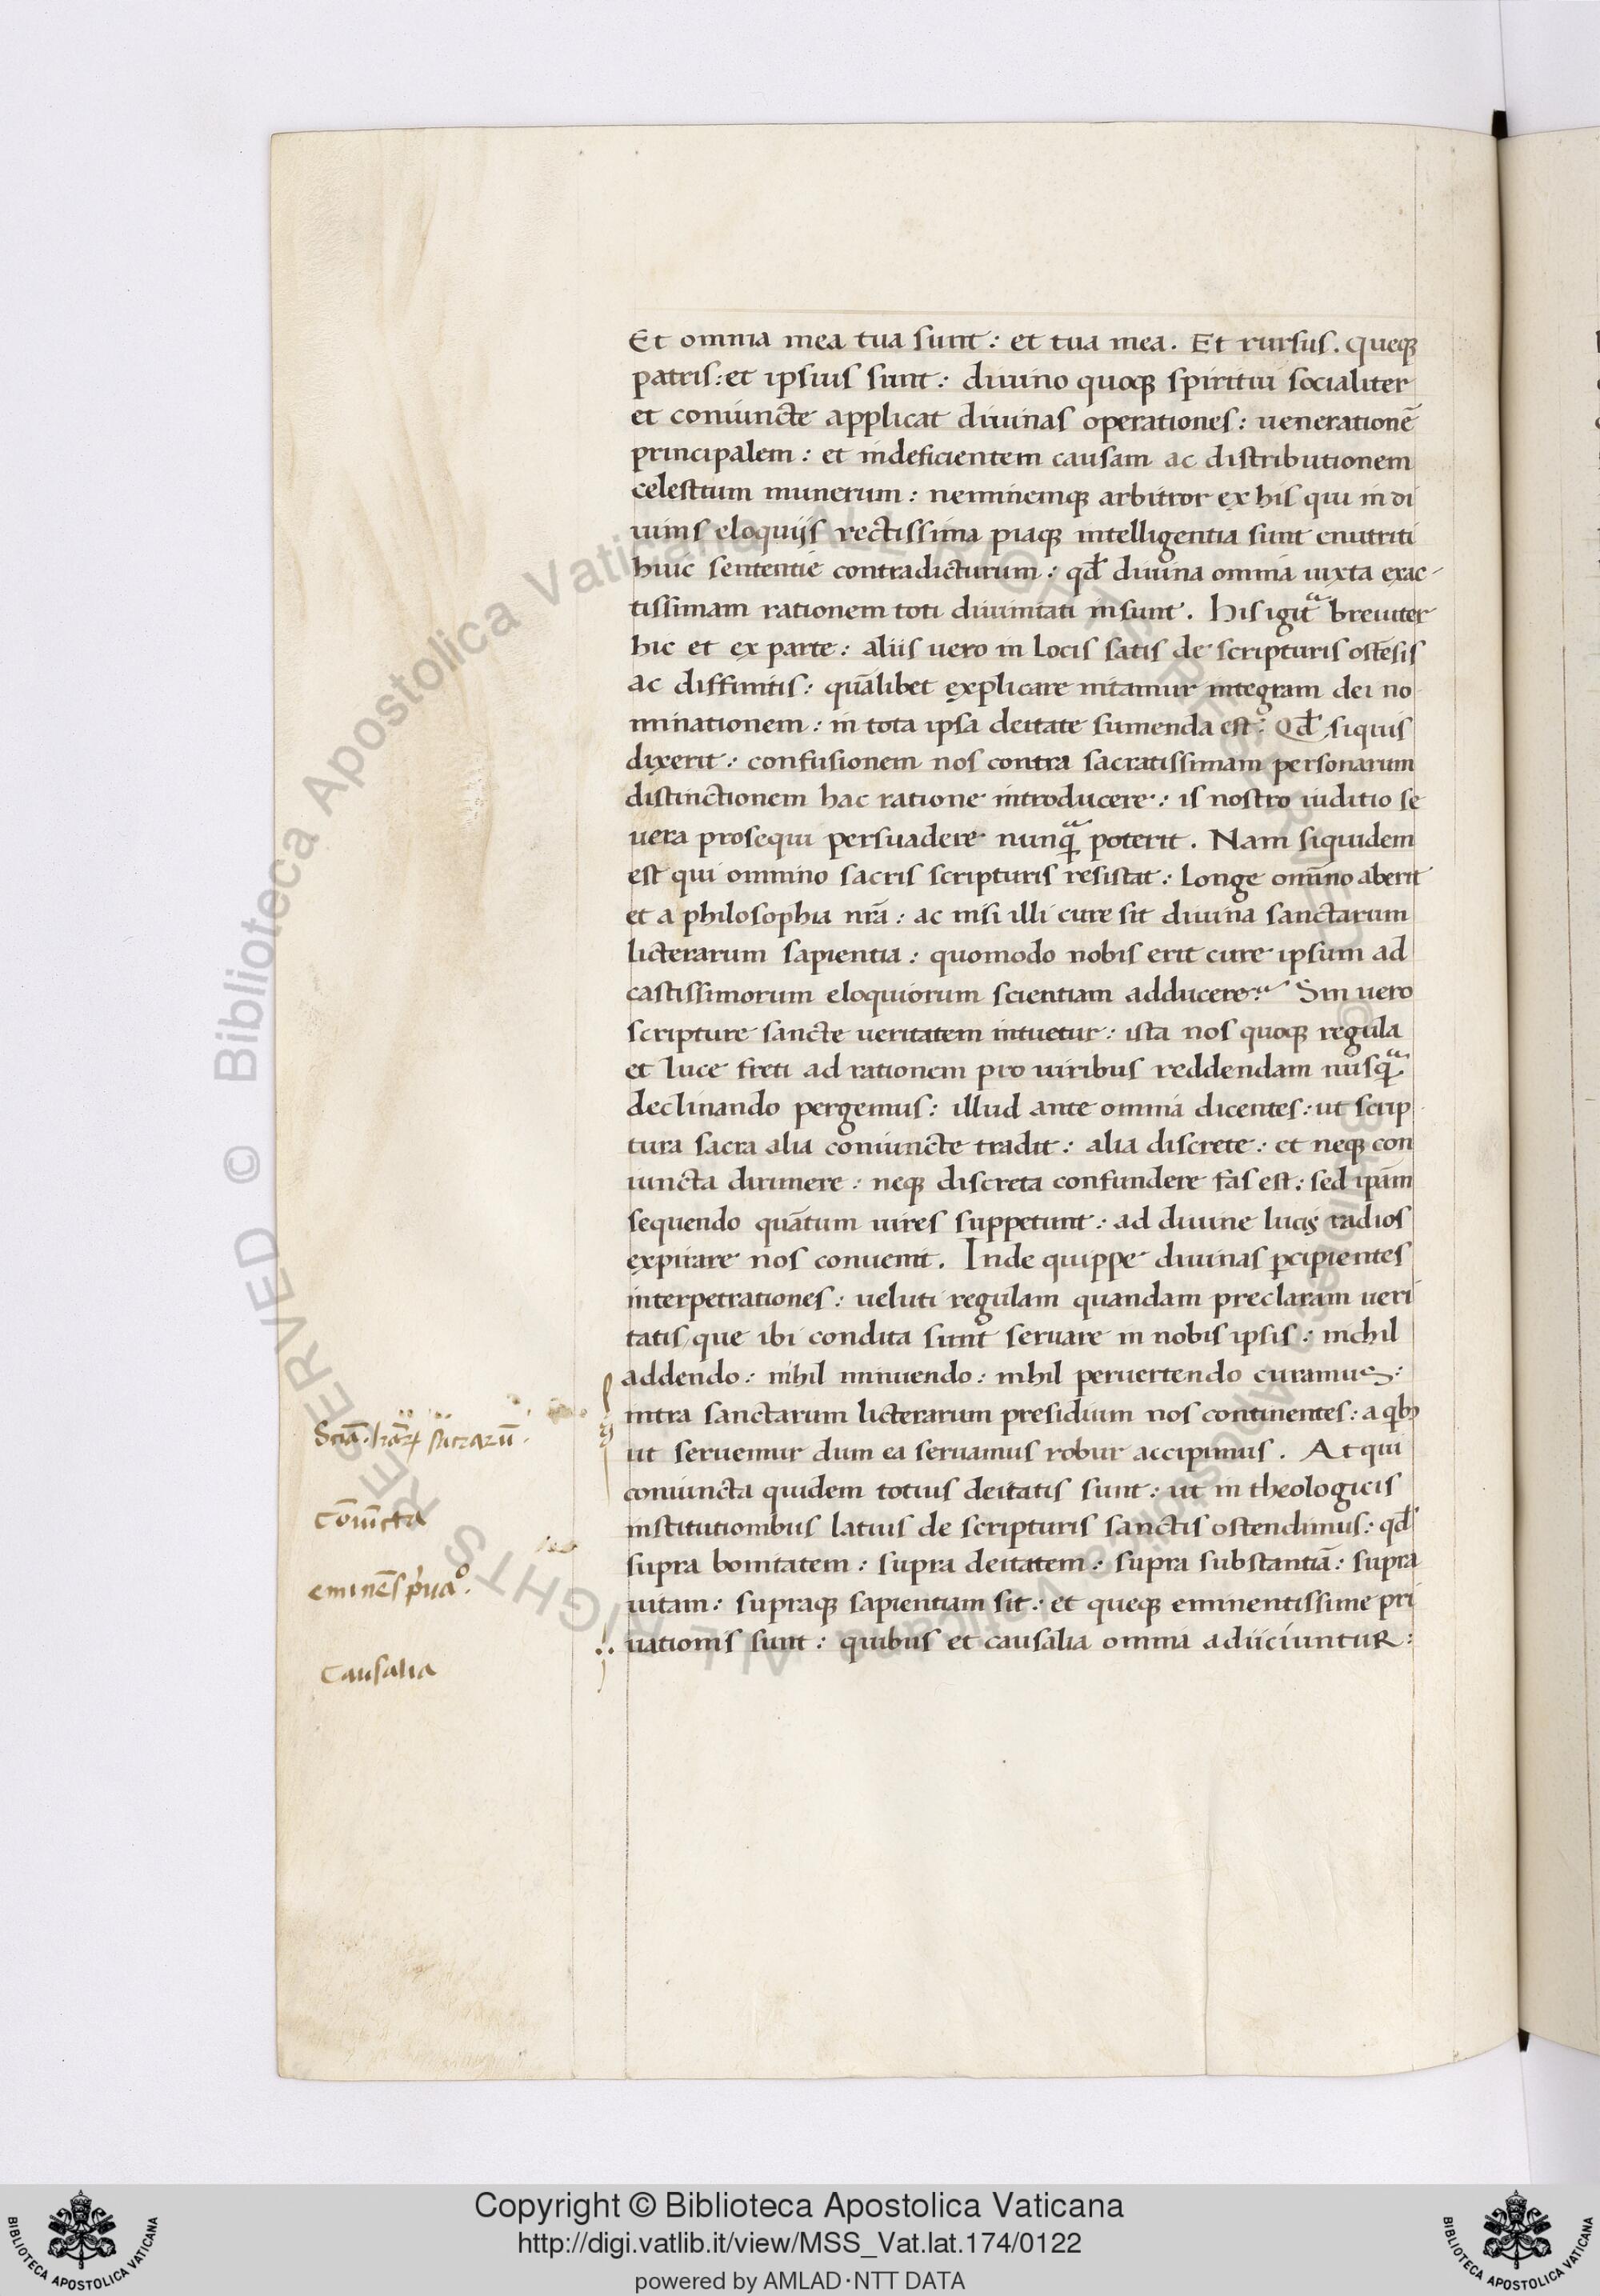 Et omnia mea tua sunt: et tua mea. Et rursus. Queqꝫ
patris: et ipsius sunt: diuino quoqꝫ spiritui socialiter
et coniuncte applicat diuinas operationes: uenerationē
principalem: et indeficientem causam ac distributionem
celestium munerum: neminemqꝫ arbitror ex his qui in di
uinis eloquijs rectissima piaqꝫ intelligentia sunt enutriti
huic sententie contradicturum: qđ diuina omnia iuxta exac-
tissimam rationem toti diuinitati insunt. His igitᵃ breuiter
hic et ex parte: aliis uero in locis satis de scripturis ostēsis
ac diffinitis: quālibet explicare nitamur integram dei no
minationem: in tota ipsa deitate sumenda est: Qđ siquis
dixerit: confusionem nos contra sacratissimam personarum
distinctionem hac ratione introducere: is nostro iuditio se
uera prosequi persuadere nunqᵃ poterit. Nam siquidem
est qui omnino sacris scripturis resistat: longe omīno aberit
et a philosophia nrā: ac nisi illi cure sit diuina sanctarum
licterarum sapientia: quomodo nobis erit cure ipsum ad
castissimorum eloquiorum scientiam adducere? Sin uero
scripture sancte ueritatem intuetur: ista nos quoqꝫ regula
et luce freti ad rationem pro uiribus reddendam nusqᵃ
declinando pergemus: illud ante omnia dicentes: ut scrip
tura sacra alia coniuncte tradit: alia discrete: et neqꝫ con
iuncta dirimere: neqꝫ discreta confundere fas est: sed ipām
sequendo quātum uires suppetunt: ad diuine lucis radios
expirare nos conuenit. Inde quippe diuinas ꝑcipientes
interpetrationes: ueluti regulam quandam preclaram ueri
tatis que ibi condita sunt seruare in nobis ipsis: nichil
addendo: nihil minuendo: nihil peruertendo curamus:
intra sanctarum licterarum presidium nos continentes: a qbꝫ
ut seruemur dum ea seruamus robur accipimus. Atqui
coniuncta quidem totius deitatis sunt: ut in theologicis
institutionibus latius de scripturis sanctis ostendimus: qđ
supra bonitatem: supra deitatem: supra substantiā: supra
uitam: supraqꝫ sapientiam sit: et queqꝫ eminentissime pri
uationis sunt: quibus et causalia omnia adiiciuntur:
Sciā. lrāꝝ sacrarū.
Cōiūcta
eminēs priuaᵒ.
Causalia
© Biblioteca Apostolica Vaticana ALL RIGHTS RESERVED
Copyright © Biblioteca Apostolica Vaticana
http://digi.vatlib.it/view/MSS_Vat.lat.174/0122
powered by AMLAD·NTT DATA
BIBLIOTECA APOSTOLICA VATICANA
BIBLIOTECA APOSTOLICA VATICANA